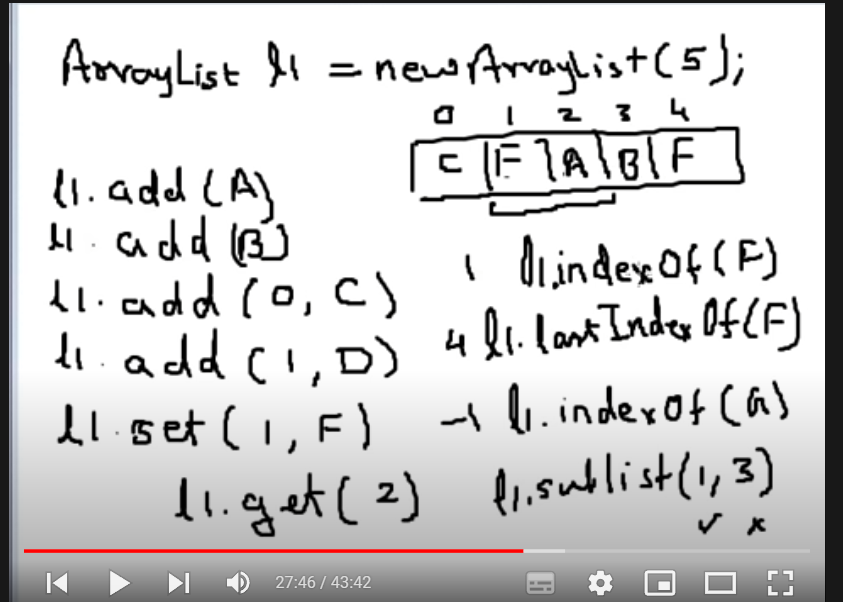 ArrayList l1 = new Arraylist(5);
0 1 2 3 4
C F A B F
l1.add(A)
l1.add(B)
l1.add(0, C)
l1.add(1, D)
l1.set(1, F)
l1.get(2)
1 l1.indexOf(F)
4 l1.lastIndexOf(F)
-1 l1.indexOf(G)
l1.sublist(1, 3)
✓ x
27:46 / 43:42